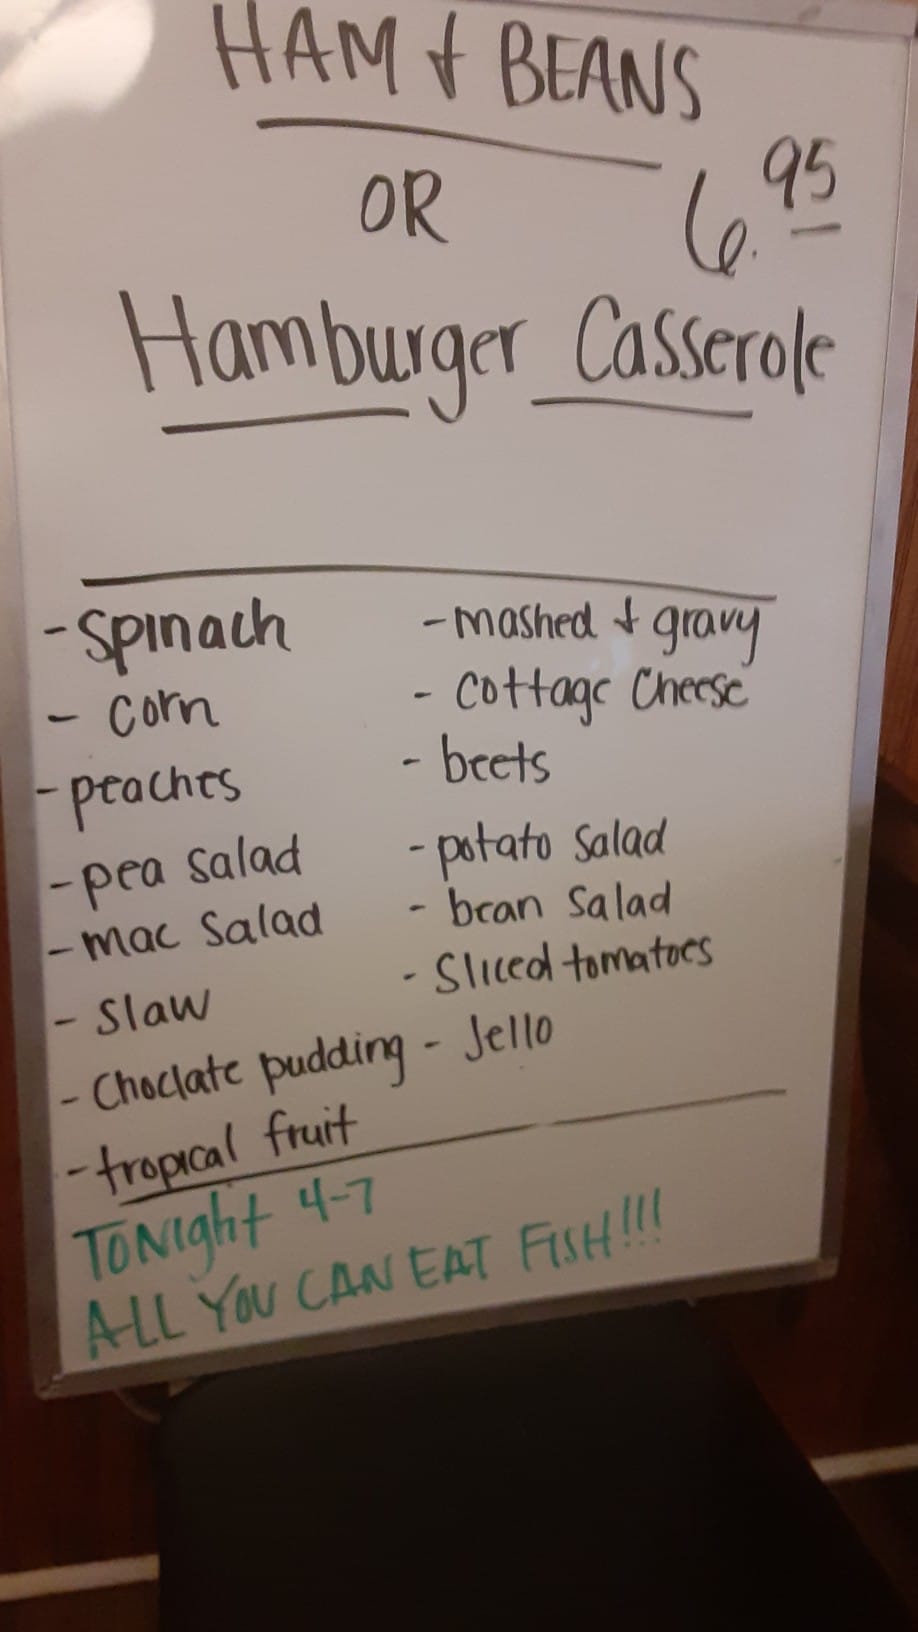 HAM & BEANS
OR 6.95
Hamburger Casserole
- Spinach - mashed & gravy
- corn - Cottage Cheese
- peaches - beets
- pea salad - potato Salad
- mac Salad - bean Salad
- Slaw - Sliced tomatoes
- Choclate pudding - Jello
- tropical fruit
TONight 4-7
ALL YOU CAN EAT FISH!!!